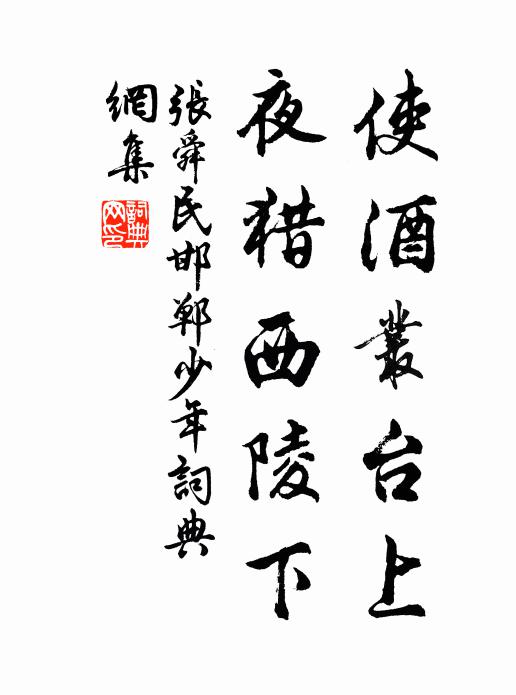 使酒叢台上
夜猎西陵下
張舜民邯鄲少年詞典
網集
詞典网印